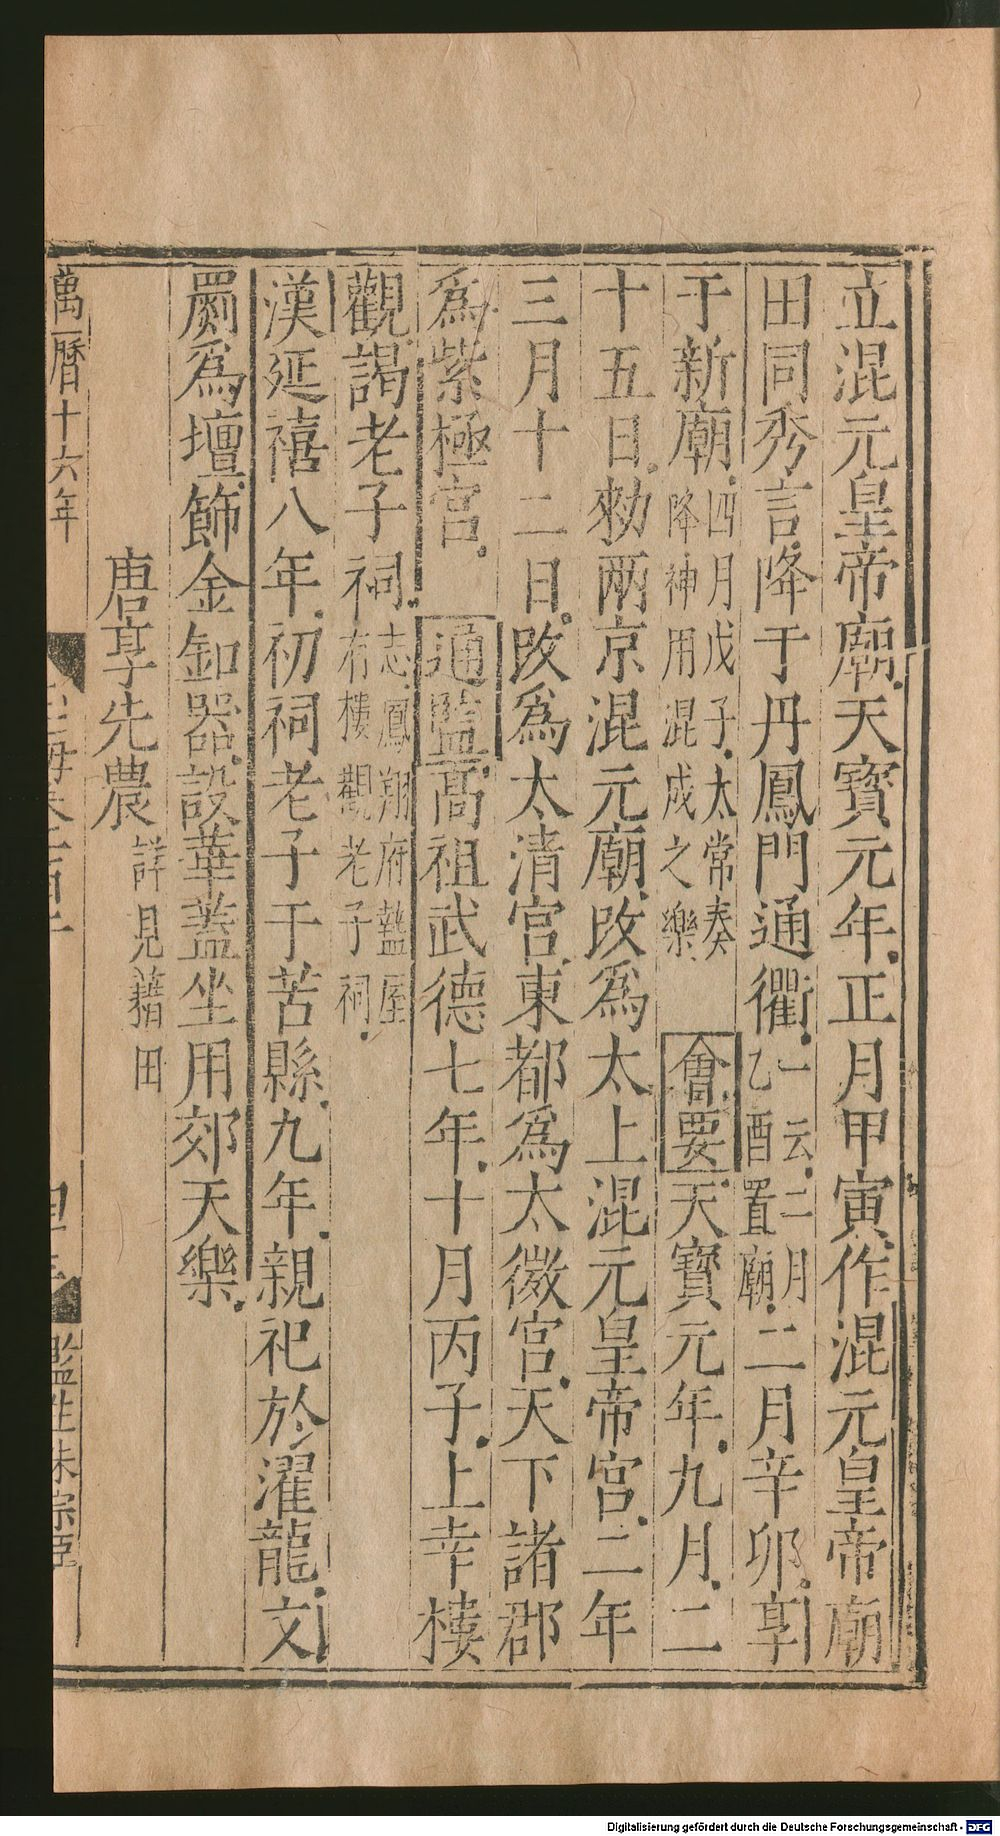 立混元皇帝廟天寶元年正月甲寅作混元皇帝廟
田同秀言降于丹鳳門通衢一云二月乙酉置廟二月辛卯享
于新廟四月戊子太常奏降神用混成之樂會要天寶元年九月二
十五日勑兩京混元廟改爲太上混元皇帝宮二年
三月十二日改爲太清宮東都爲太微宮天下諸郡
爲紫極宮通監高祖武德七年十月丙子上幸樓
觀謁老子祠志鳳翔府盩厔有樓觀老子祠
漢延禧八年初祠老子于苦縣九年親祀於濯龍文
罽爲壇飾金釦器設華蓋坐用郊天樂
唐享先農詳見藉田
萬曆十六年
監生朱宗臣
Digitalisierung gefördert durch die Deutsche Forschungsgemeinschaft - DFG